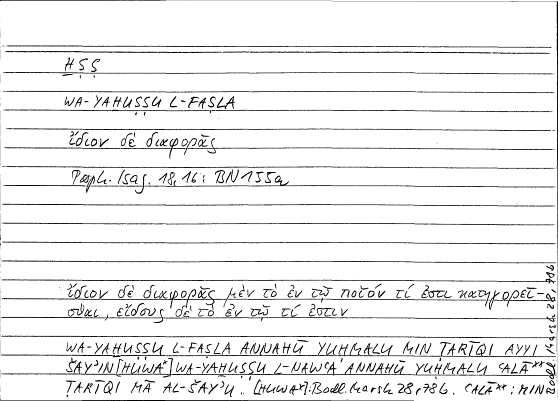 ḪṢṢ
WA-YAḪUṢṢU L-FAṢLA
ἴδιον δὲ διαφορᾶς
Porph. Isag. 18,16: BN 155a
ἴδιον δὲ διαφορᾶς μὲν τὸ ἐν τῷ ποῖόν τί ἐστι κατηγορεῖ-
σθαι, εἴδους δὲ τὸ ἐν τῷ τί ἐστιν
WA-YAḪUṢṢU L-FAṢLA ANNAHŪ YUḤMALU MIN ṬARĪQI AYYI
ŠAYʾIN [HUWAˣ] WA-YAḪUṢṢU L-NAWʿA ANNAHŪ YUḤMALU ʿALĀˣˣ
ṬARĪQI MĀ AL-ŠAYʾU. [HUWAˣ]: Bodl. Marsh 28, 78b. ʿALĀˣˣ: MIN
Bodl. Marsh 28,